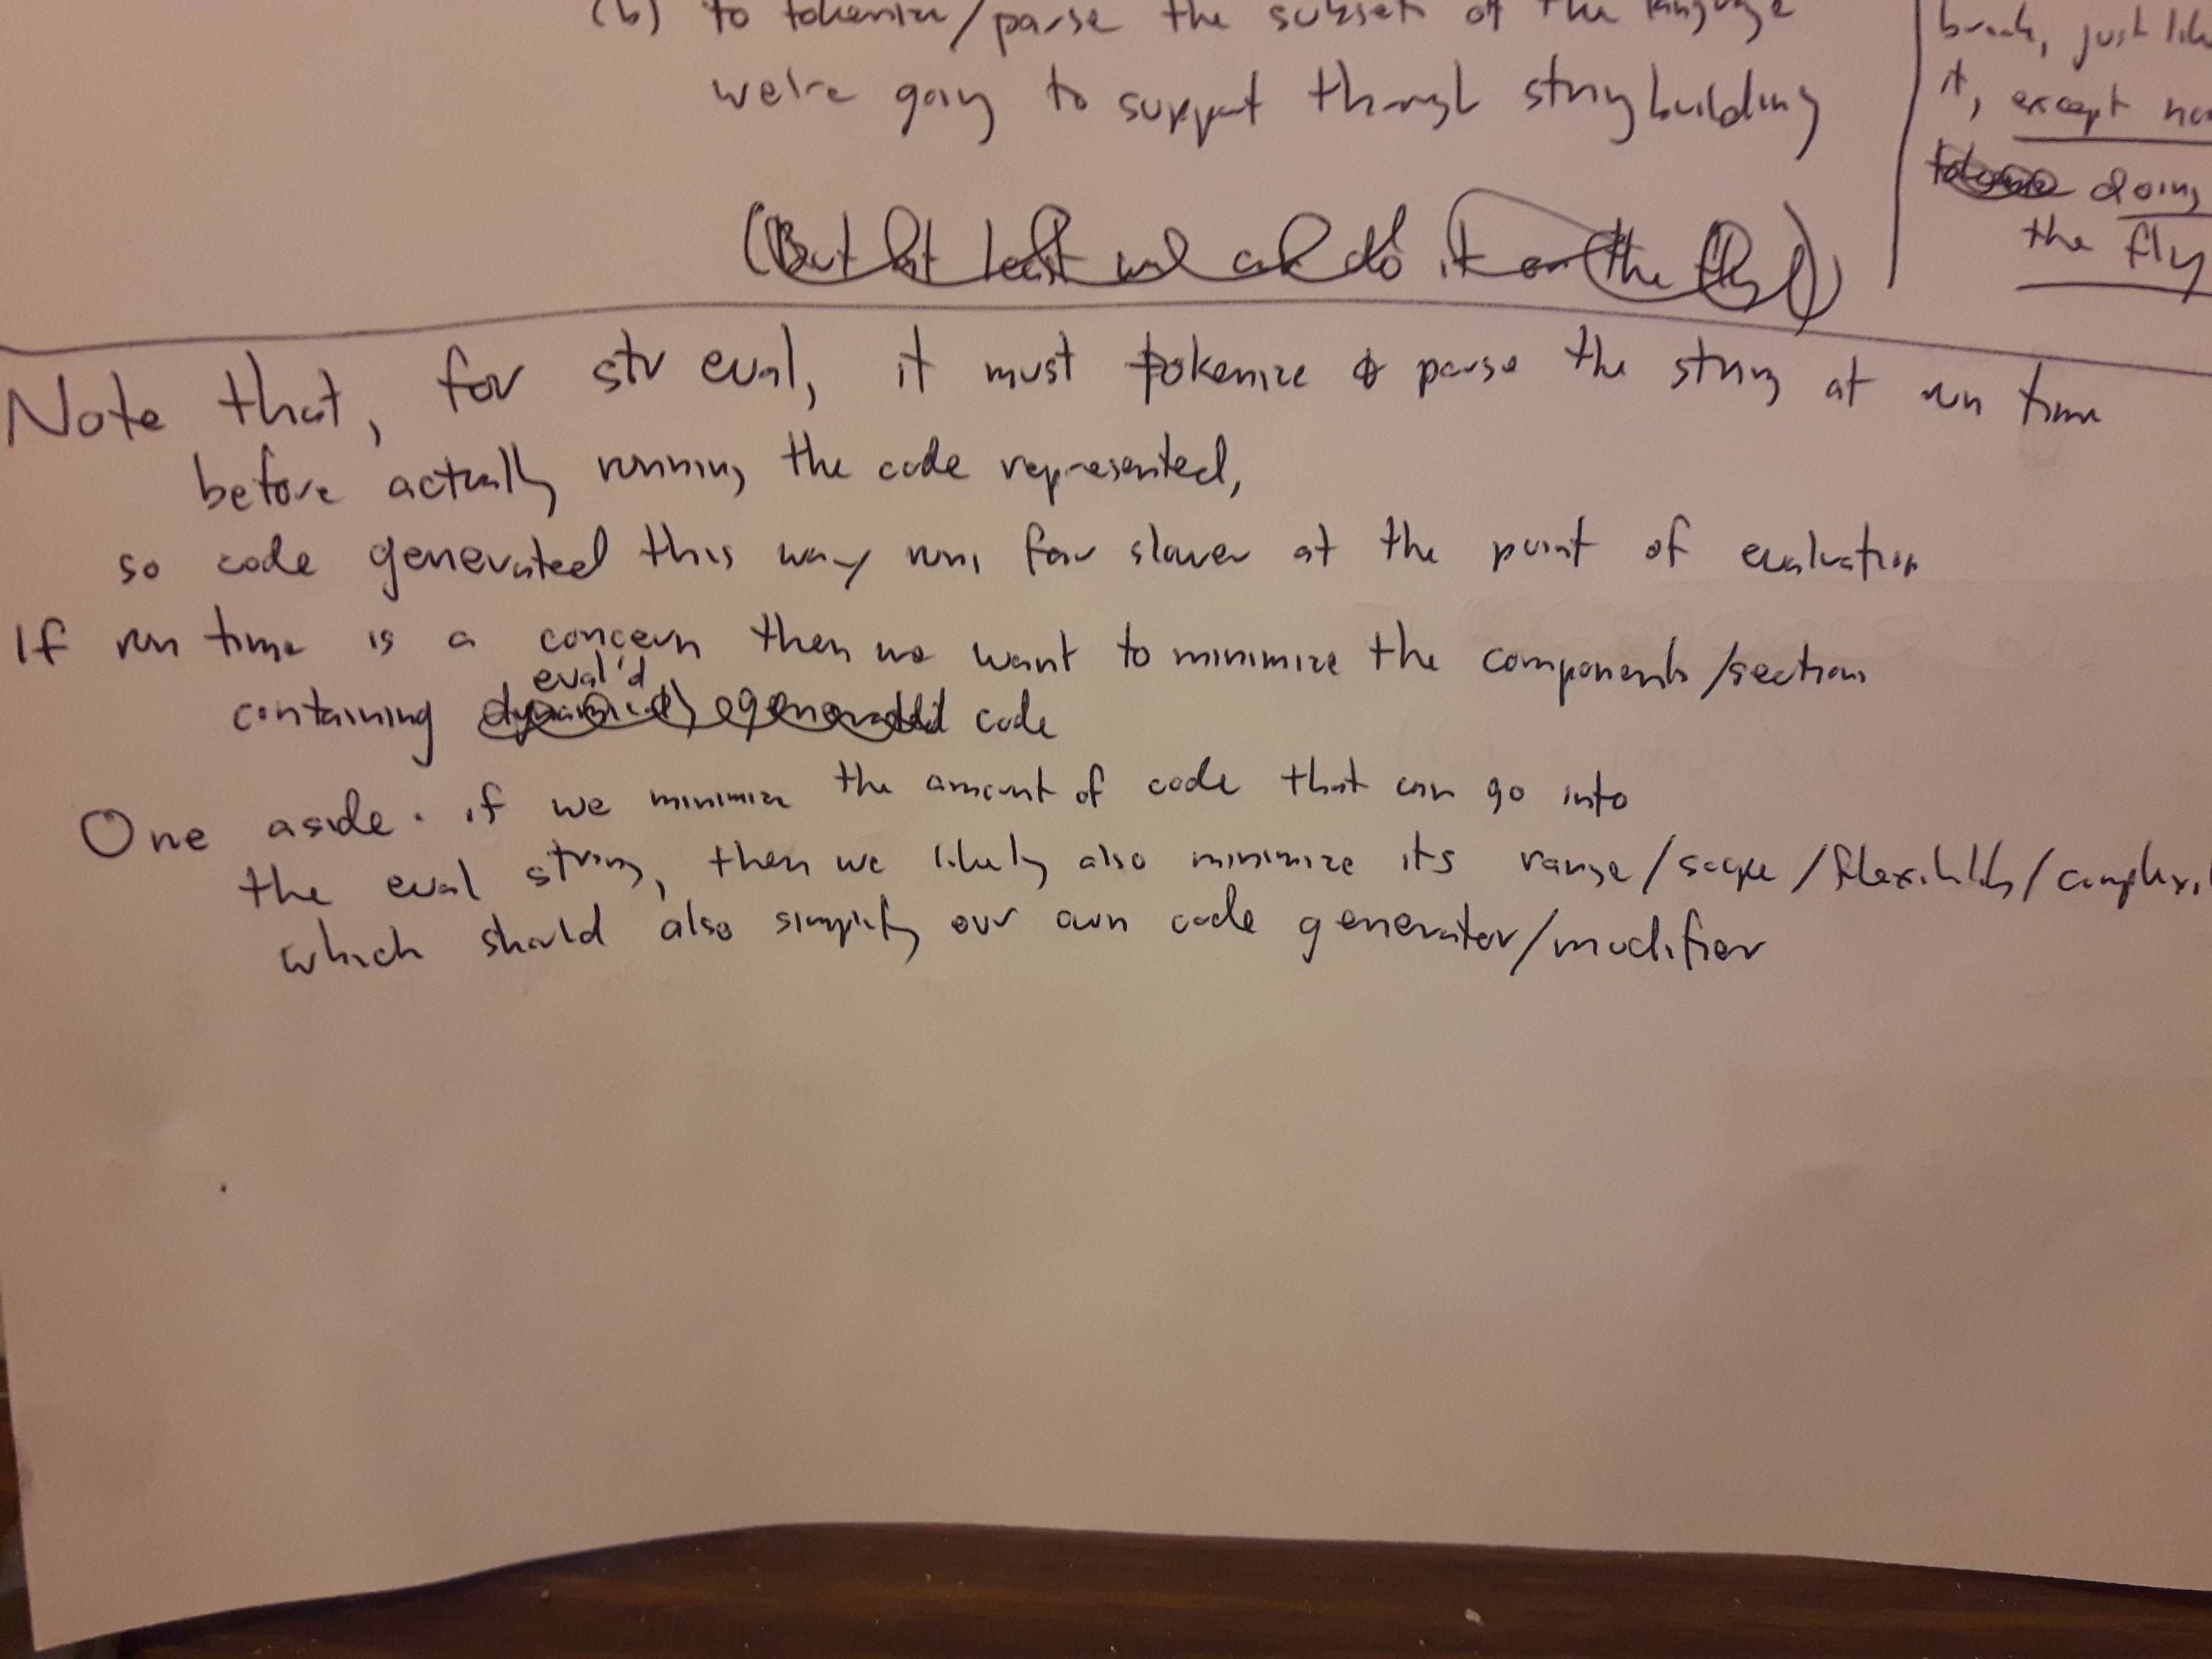 (b) to tokenize/parse the subset of the language
we're going to support through string building
(But at least we can do it on the fly)
break, just like
it, except
doing
the fly
Note that, for str eval, it must tokenize & parse the string at run time
before actually running the code represented,
so code generated this way runs far slower at the point of evaluation
If run time is a concern then we want to minimize the components/sections
eval'd
containing dynamically generated code
One aside. if we minimize the amount of code that can go into
the eval string, then we likely also minimize its range/scope/flexibility/
which should also simplify our own code generator/modifier